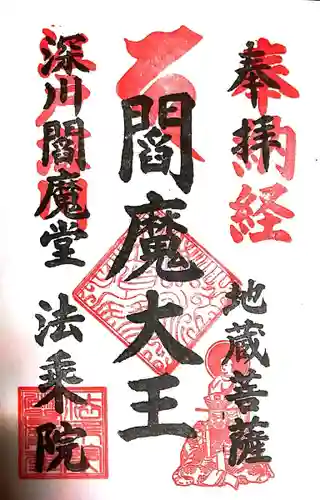 奉拝
納経
地蔵菩薩
閻魔大王
深川閻魔堂
法乗院